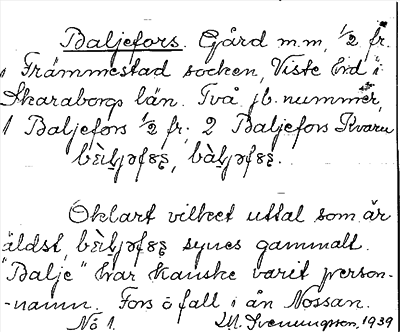 Baljefors. Gård m.m, 1/2 fr.
i Främmestad socken, Viste hd i
Skaraborgs län. Två jb. nummer,
1 Baljefors 1/2 fr. 2 Baljefors Kvarn
Oklart vilket uttal som är
äldst, synes gammalt.
"Balje" har kanske varit person-
-namn. Fors ö fall i ån Nossan.
No 1. M. Svenungson, 1939